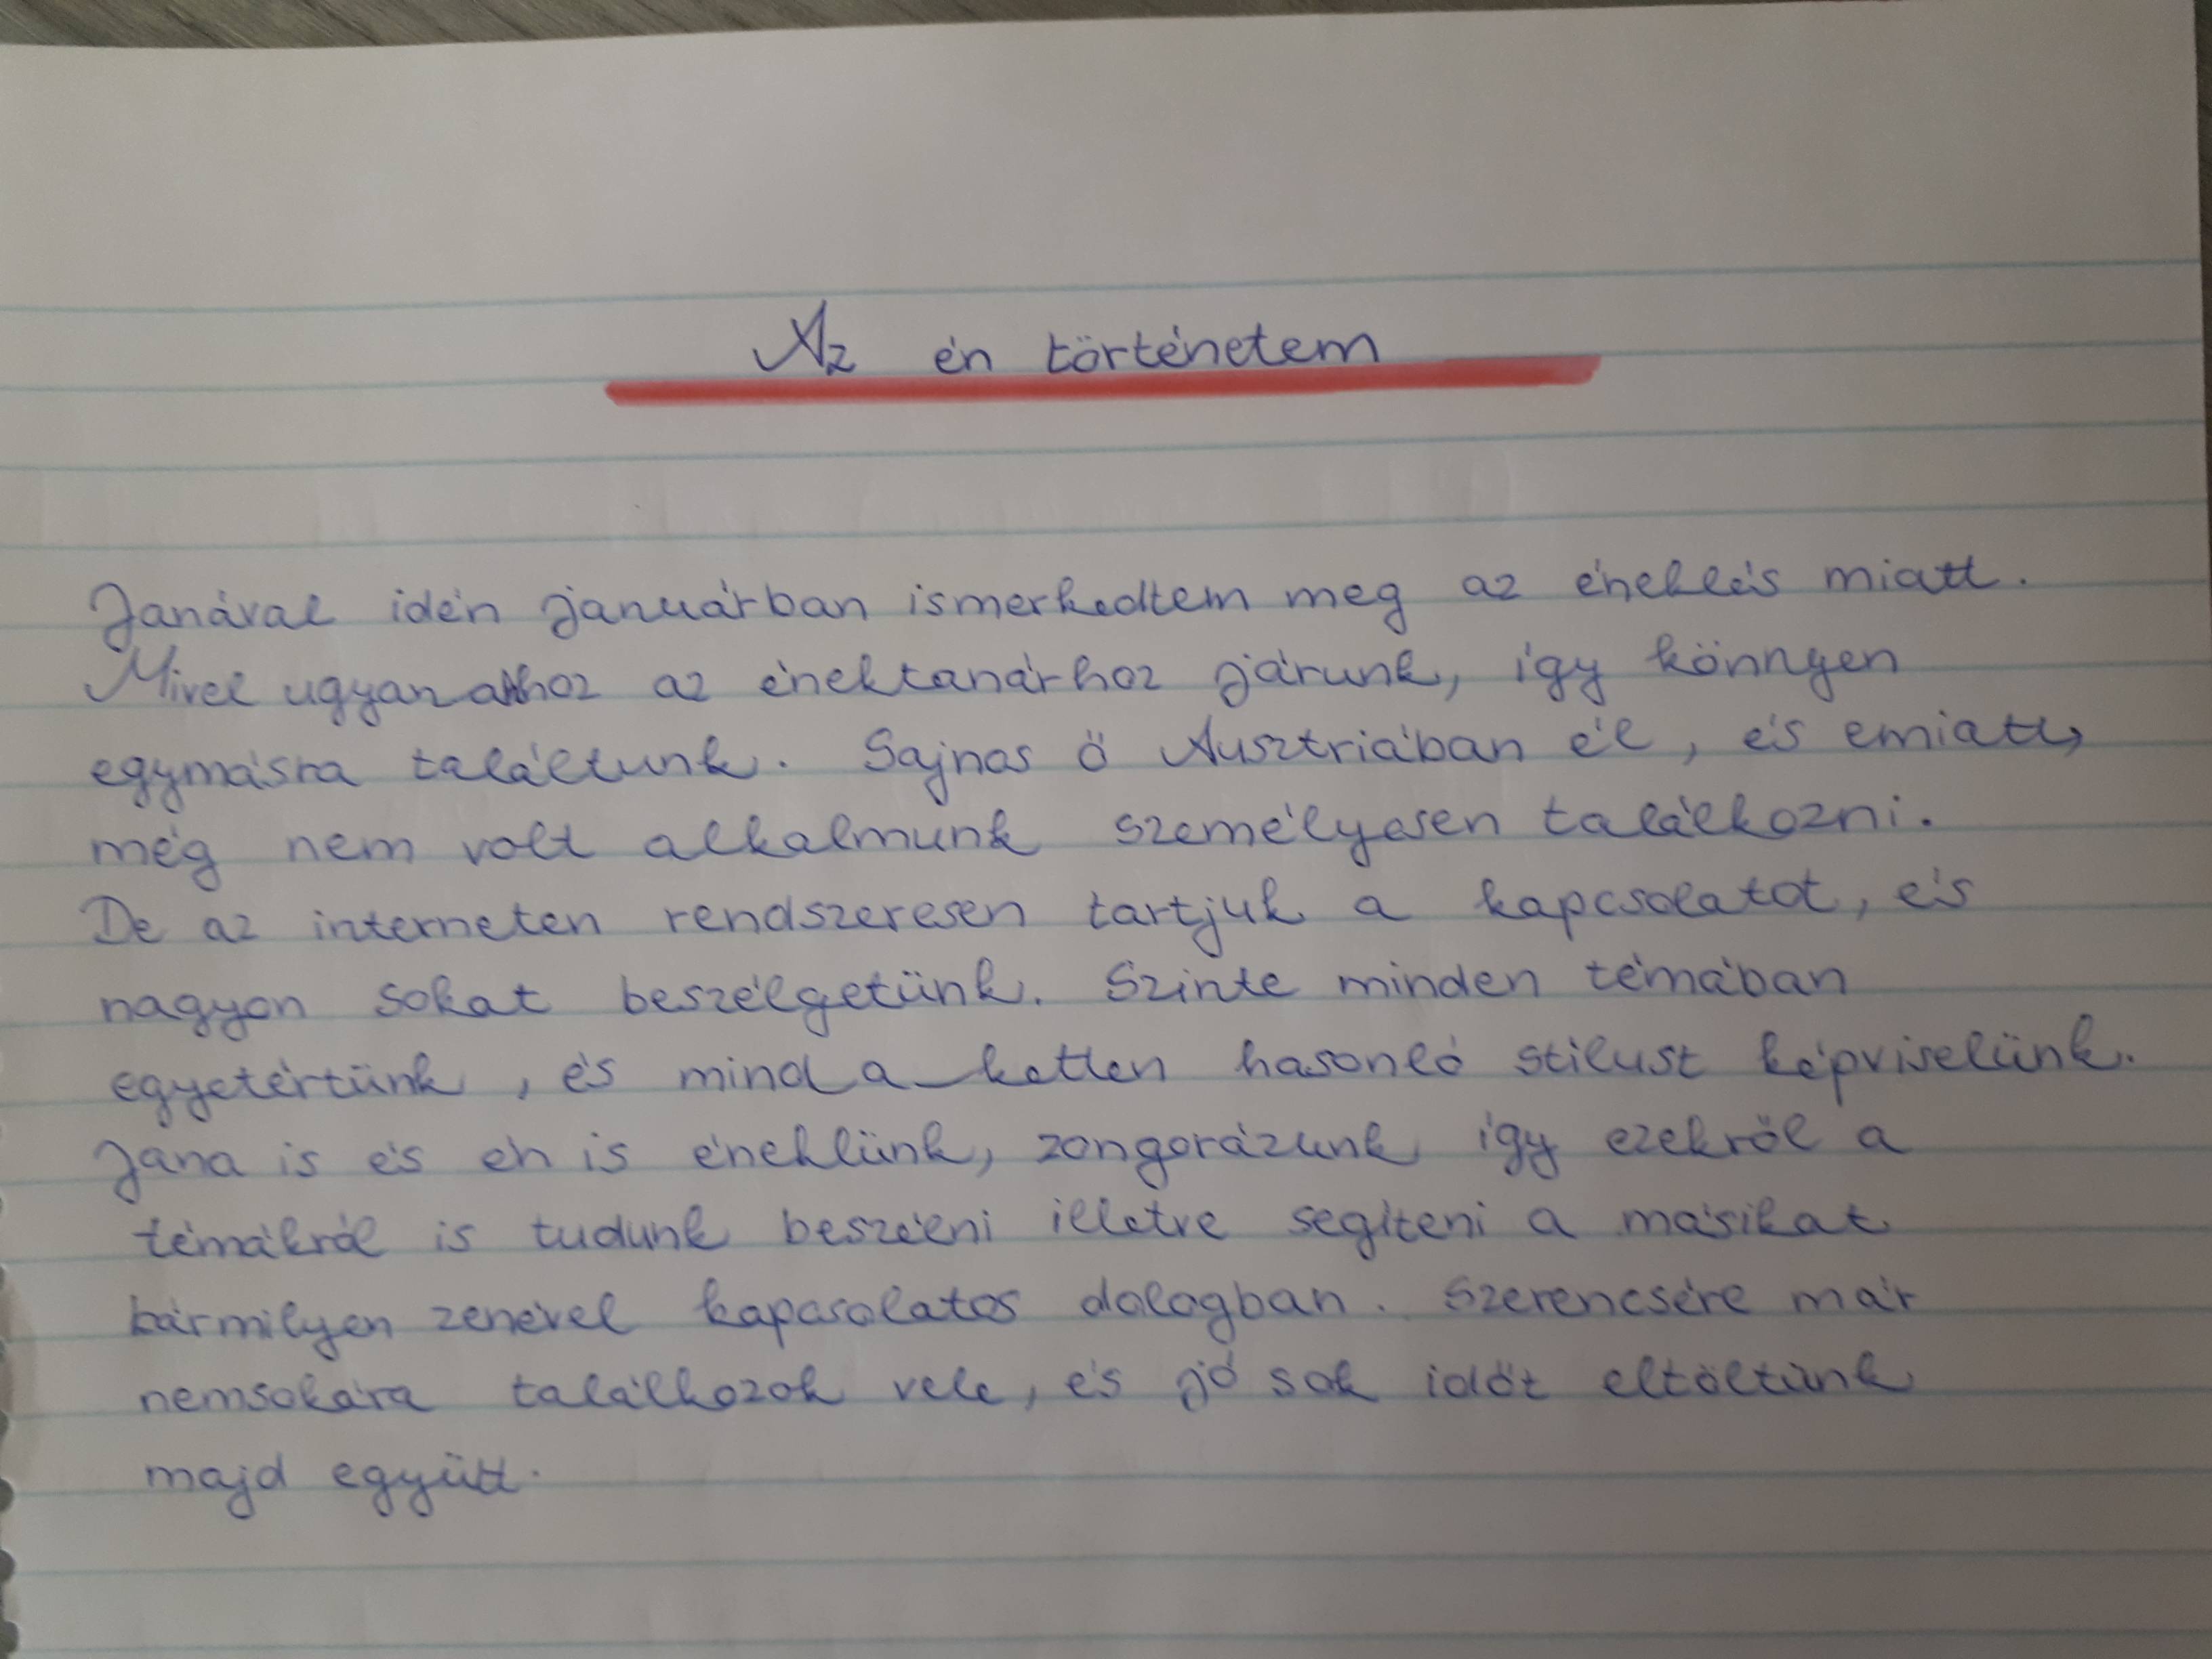 Az én történetem
Janával idén januárban ismerkedtem meg az éneklés miatt.
Mivel ugyanahhoz az énektanárhoz járunk, így könnyen
egymásra találtunk. Sajnos ő Ausztriában él, és emiatt,
még nem volt alkalmunk személyesen találkozni.
De az interneten rendszeresen tartjuk a kapcsolatot, és
nagyon sokat beszélgetünk. Szinte minden témában
egyetértünk, és mind a ketten hasonló stílust képviselünk.
Jana is és én is éneklünk, zongorázunk így ezekről a
témákról is tudunk beszélni illetve segíteni a másikat
bármilyen zenével kapcsolatos dologban. Szerencsére már
nemsokára találkozok vele, és jó sok időt eltöltünk
majd együtt.